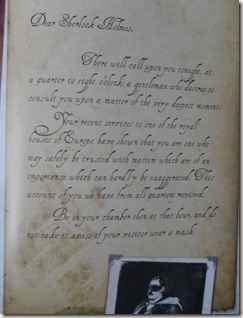 Dear Sherlock Holmes,
There will call upon you tonight, at
a quarter to eight o'clock, a gentleman who desires to
consult you upon a matter of the very deepest moment.
Your recent services to one of the royal
houses of Europe have shown that you are one who
may safely be trusted with matters which are of an
importance which can hardly be exaggerated. This
account of you we have from all quarters received.
Be in your chamber then at that hour, and do
not take it amiss if your visitor wear a mask.